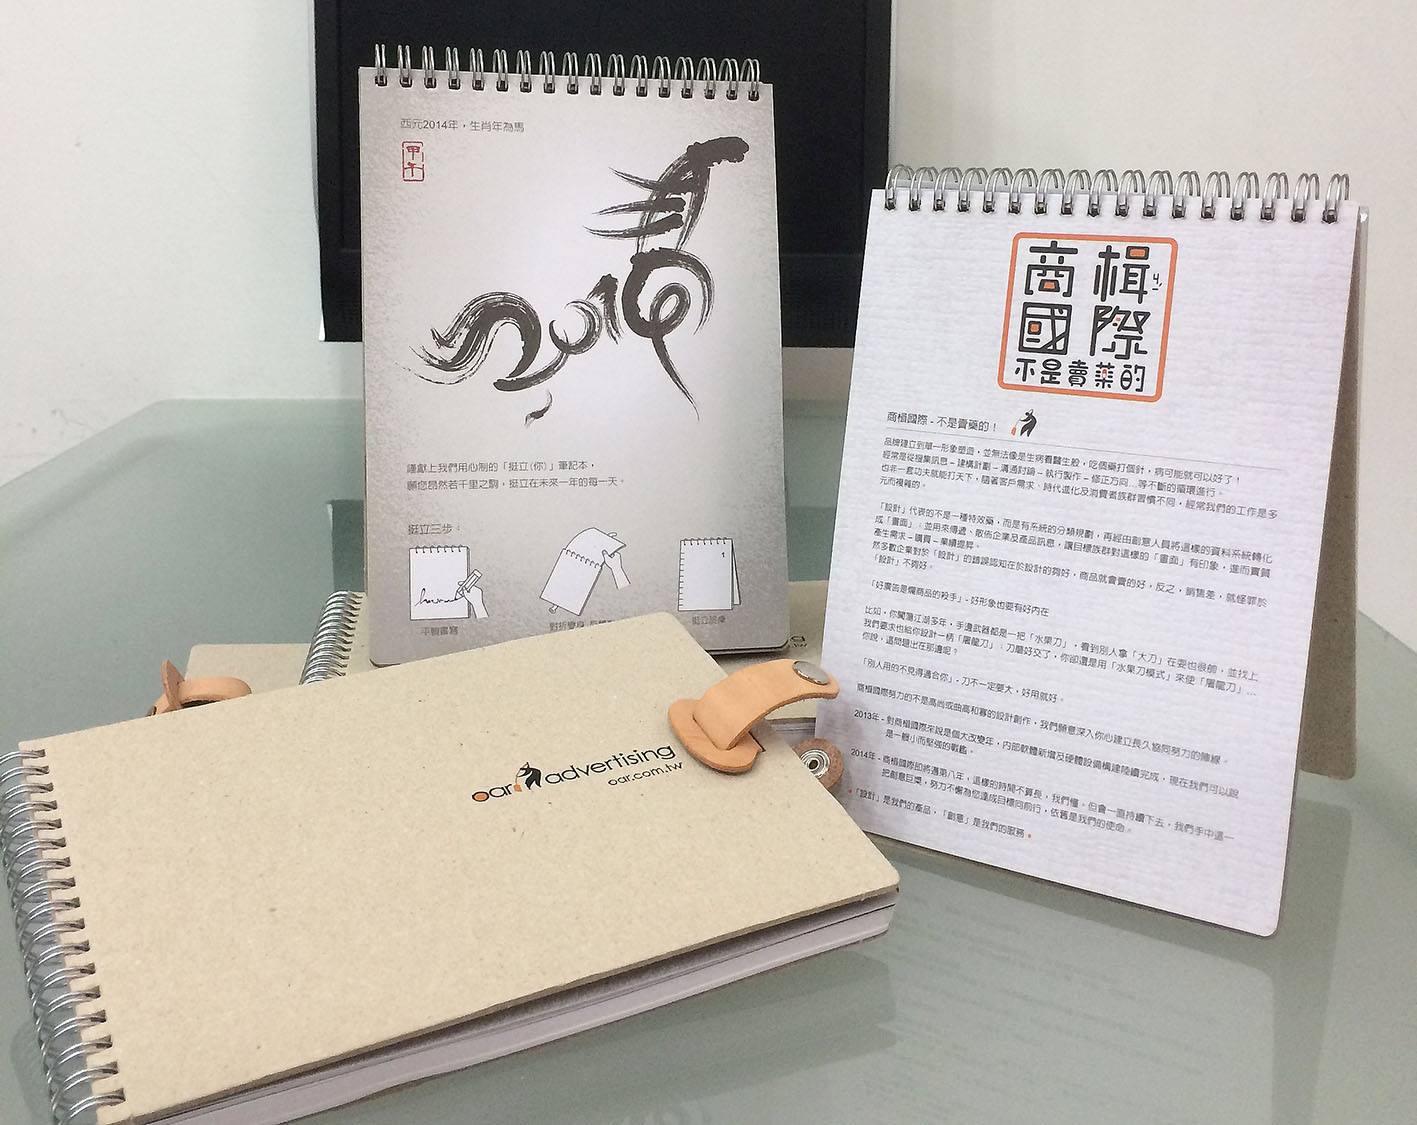 西元2014年，生肖年為馬
甲
午
謹獻上我們用心制的「挺立(你)」筆記本，
願您昂然若千里之駒，挺立在未來一年的每一天。
挺立三步：
1
平騎書寫
挺立說桌
商楫
國際
不是賣藥的
商楫國際 - 不是賣藥的！
品牌建立到單一形象塑造，並無法像是生病看醫生般，吃個藥打個針，病可能就可以好了！
經常是從搜集訊息 – 建構計劃 – 溝通討論 – 執行製作 – 修正方向...等不斷的循環進行。
也非一套功夫就能打天下，隨著客戶需求、時代進化及消費者族群習慣不同，經常我們的工作是多
元而複雜的。
「設計」代表的不是一種特效藥，而是有系統的分類規劃，再經由創意人員將這樣的資料系統轉化
成「畫面」；並用來傳遞、散佈企業及產品訊息，讓目標族群對這樣的「畫面」有印象，進而實質
產生需求 – 購買 – 業績提昇。
然多數企業對於「設計」的錯誤認知在於設計的夠好，商品就會賣的好，反之，銷售差，就怪罪於
「設計」不夠好。
「好廣告是爛商品的殺手」- 好形象也要有好內在
比如，你闖蕩江湖多年，手邊武器都是一把「水果刀」，看到別人拿「大刀」在耍也很帥，並找上
我們要求也給你設計一柄「屠龍刀」；刀磨好交了，你卻還是用「水果刀模式」來使「屠龍刀」...
你說，這問題出在那邊呢？
「別人用的不見得適合你」- 刀不一定要大，好用就好。
商楫國際努力的不是高尚或曲高和寡的設計創作，我們願意深入你心建立長久協同努力的陣線。
2013年 - 對商楫國際來說是個大改變年，內部軟體新增及硬體設備構建陸續完成，現在我們可以說
是一艘小而堅強的戰艦。
2014年 - 商楫國際即將邁第八年，這樣的時間不算長，我們懂。但會一直持續下去，我們手中這一
把創意巨槳，努力不懈為您達成目標向前行，依舊是我們的使命。
「設計」是我們的產品，「創意」是我們的服務
oar advertising
oar.com.tw